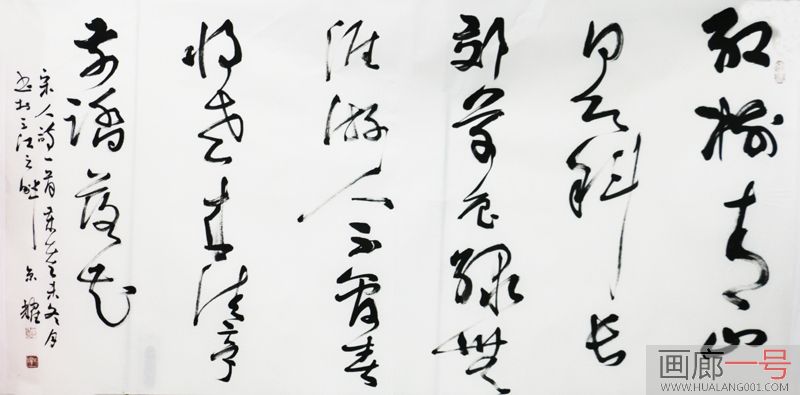 红樹青山
日欲斜长
郊草色绿無
涯游人不管春
将老来往亭
前踏落花
宋人诗一首 未冬月
书於三江之畔
画廊一号
WWW.HUALANG001.COM